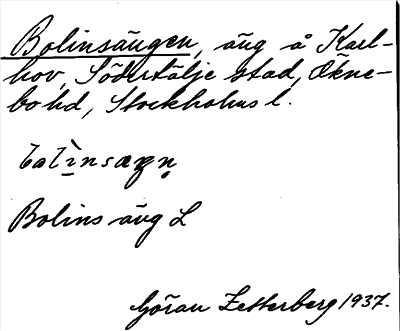 Bolinsängen, äng å Karl-
hov, Södertälje stad, Ökne-
bo hd, Stockholms l.
Bolins äng L
Göran Zetterberg 1937.